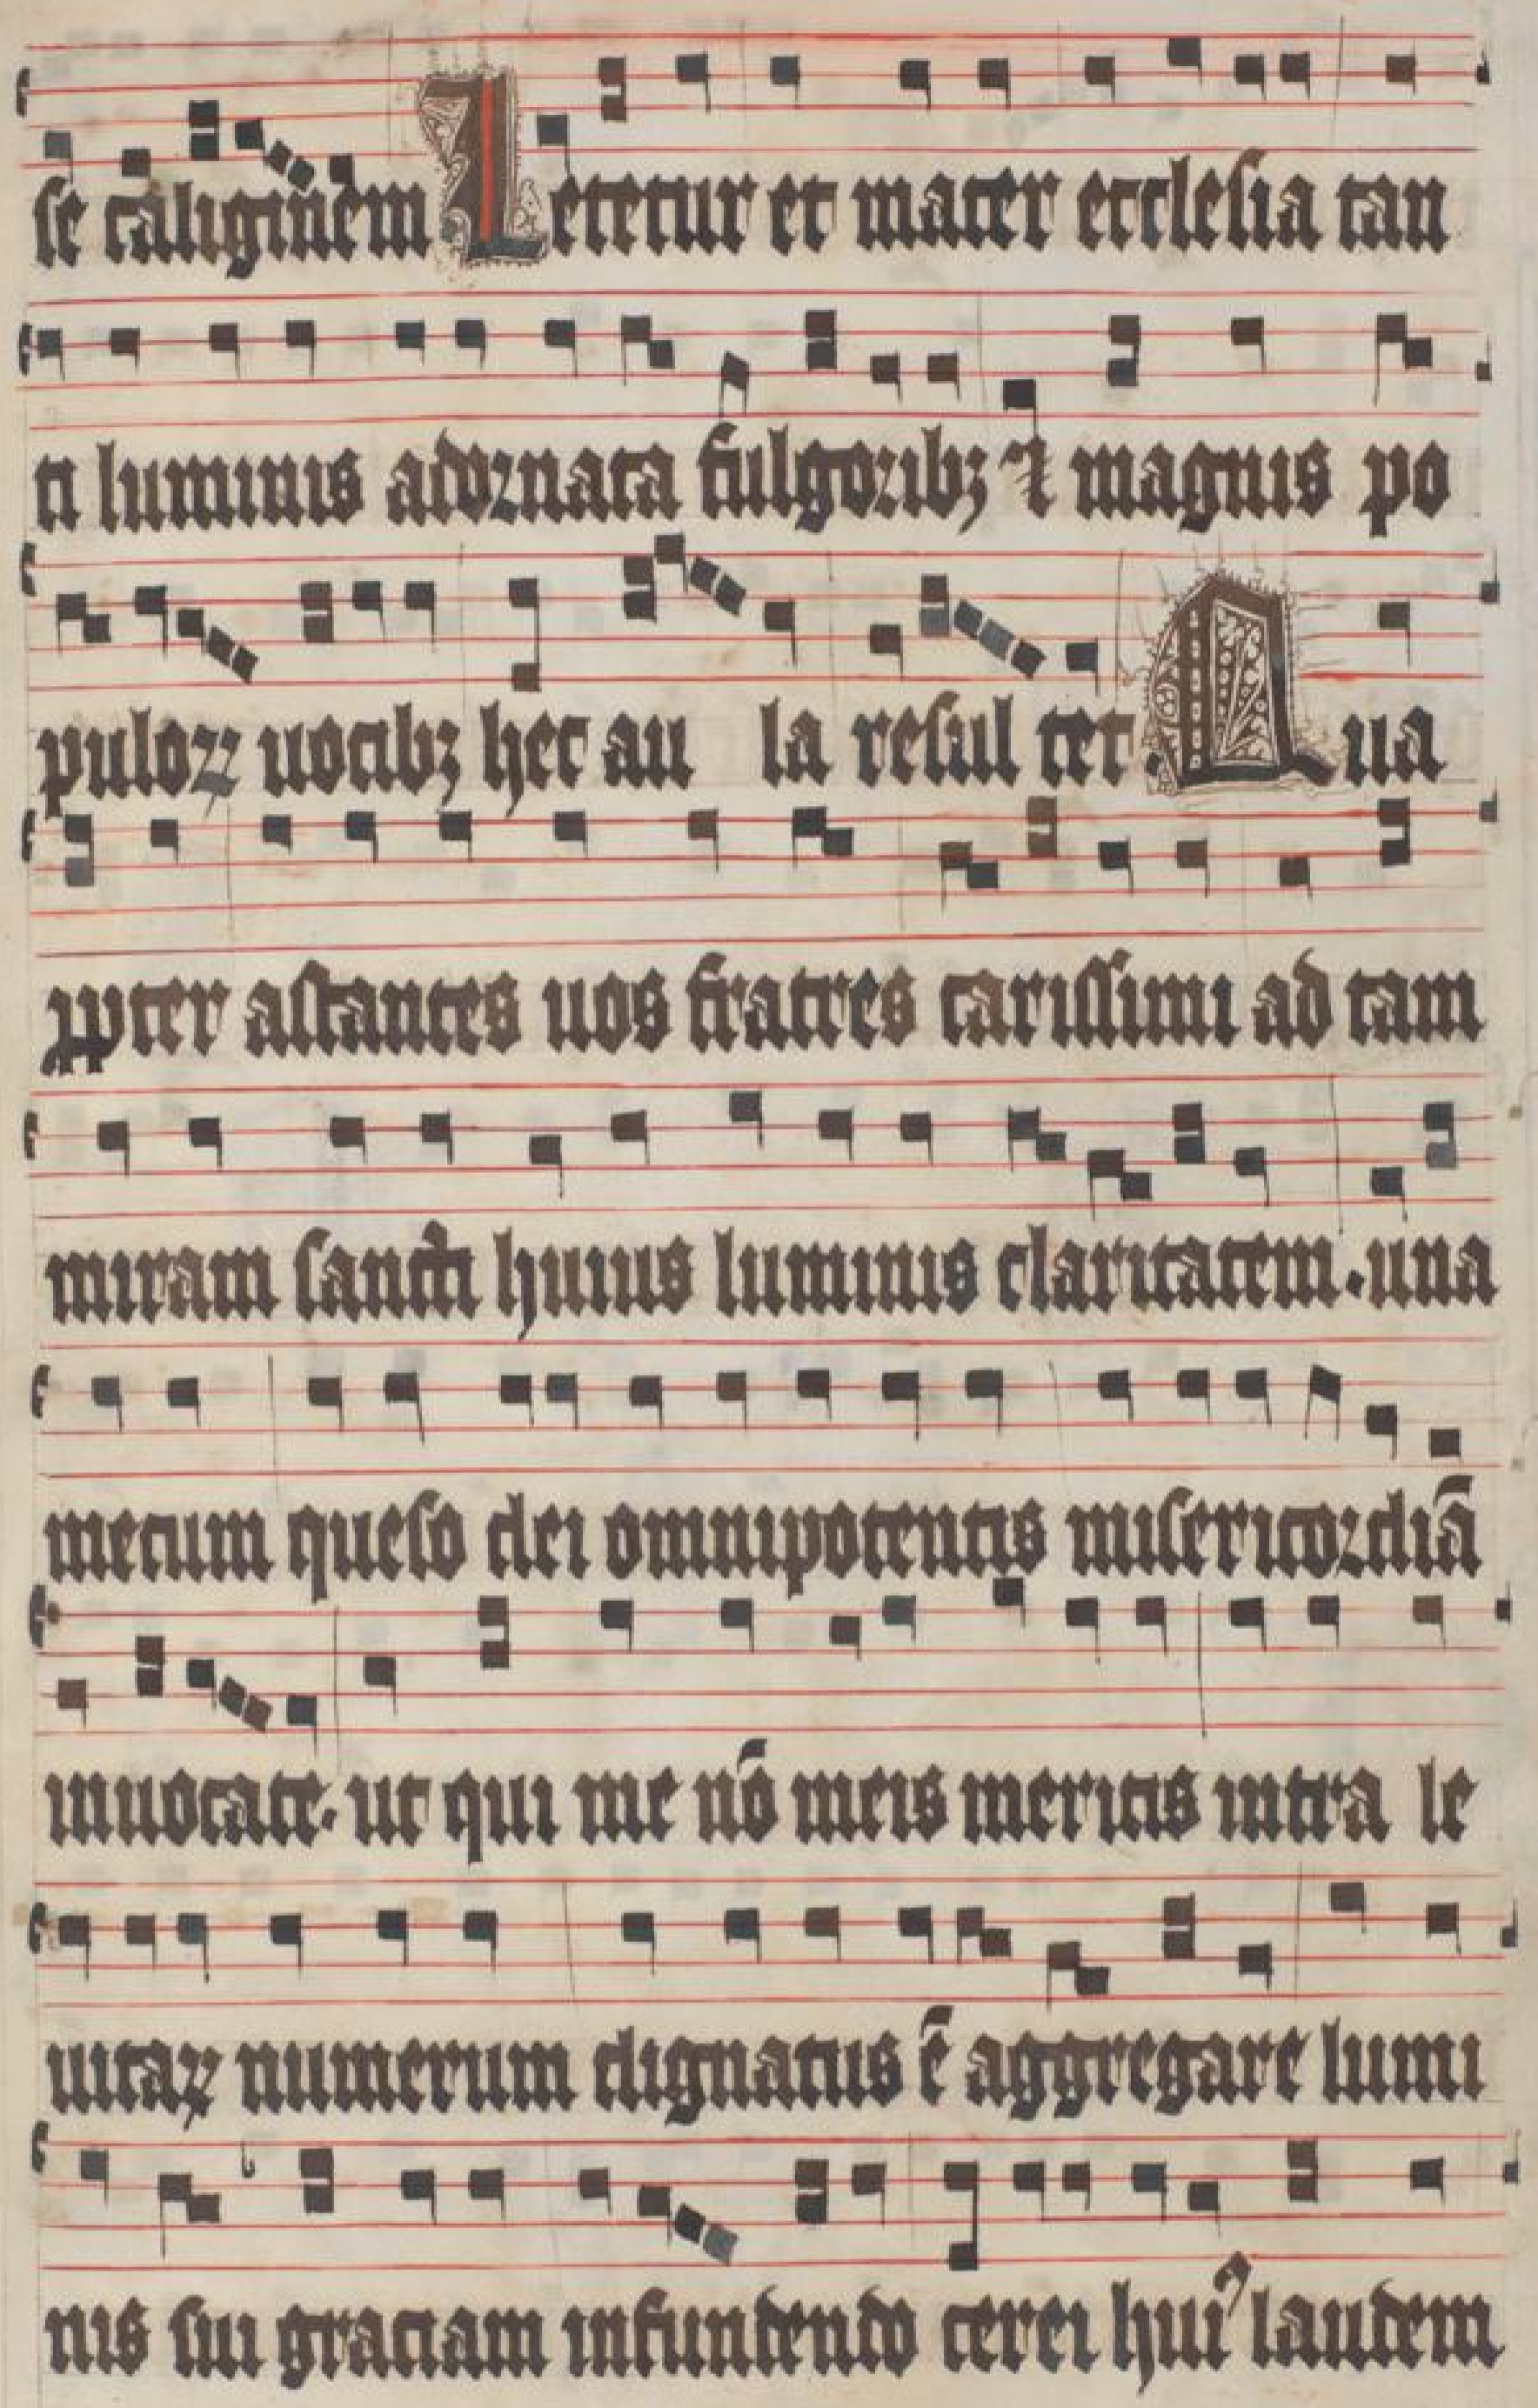 se caliginem Letetur et mater ecclesia tan
ti luminis adornata fulgoribꝫ ⁊ magnis po
puloꝝ uocibꝫ hec au la resul tet. Qua
ꝓpter astantes uos fratres carissimi ad tam
miram sancti huius luminis claritatem. una
mecum queso dei omnipotentis misericordiā
inuocate. ut qui me nō meis meritis intra le
uitaꝝ numerum dignatus ē aggregare lumi
nis sui graciam infundendo cerei huiꝰ laudem